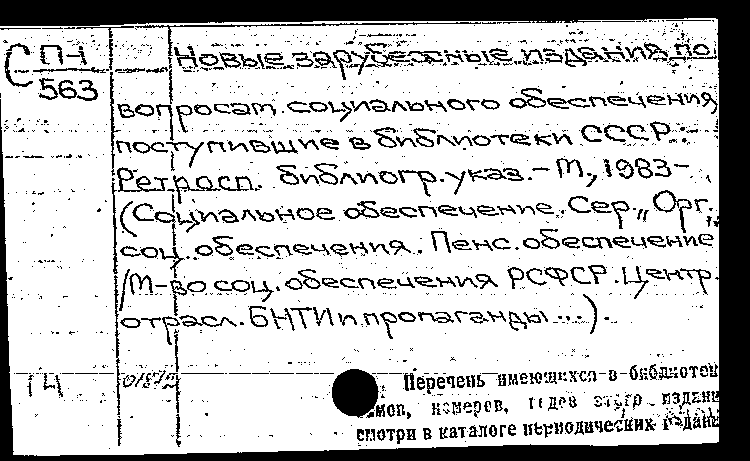 С П-1 Новые зарубежные издания по
563
вопросам социального обеспечения,
поступившие в библиотеки СССР:
Ретросп. библиогр. указ. - М, 1983 -
(Социальное обеспечение. Сер. „Орг.
соц. обеспечения. Пенс. обеспечение
/М-во соц. обеспечения РСФСР. Центр.
отрасл. БНТИ и пропаганды ...).
14 01872 Перечень имеющихся в библиотеке
томов, номеров, издания
смотри в каталоге периодических